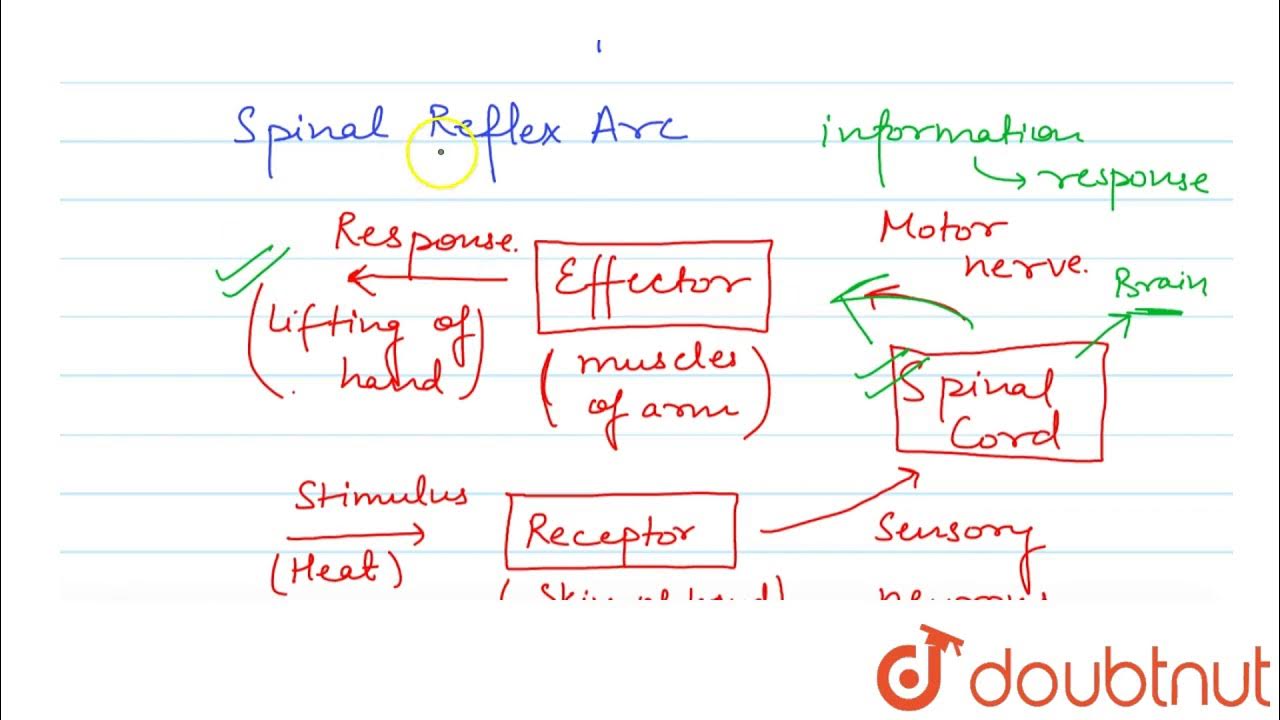 Spinal Reflex Arc
information
response
Response.
(Lifting of
hand)
Effector
(muscles
of arm)
Motor
nerve.
Brain
Spinal
Cord
Stimulus
(Heat)
Receptor
(Skin of hand)
Sensory
neurons
doubtnut